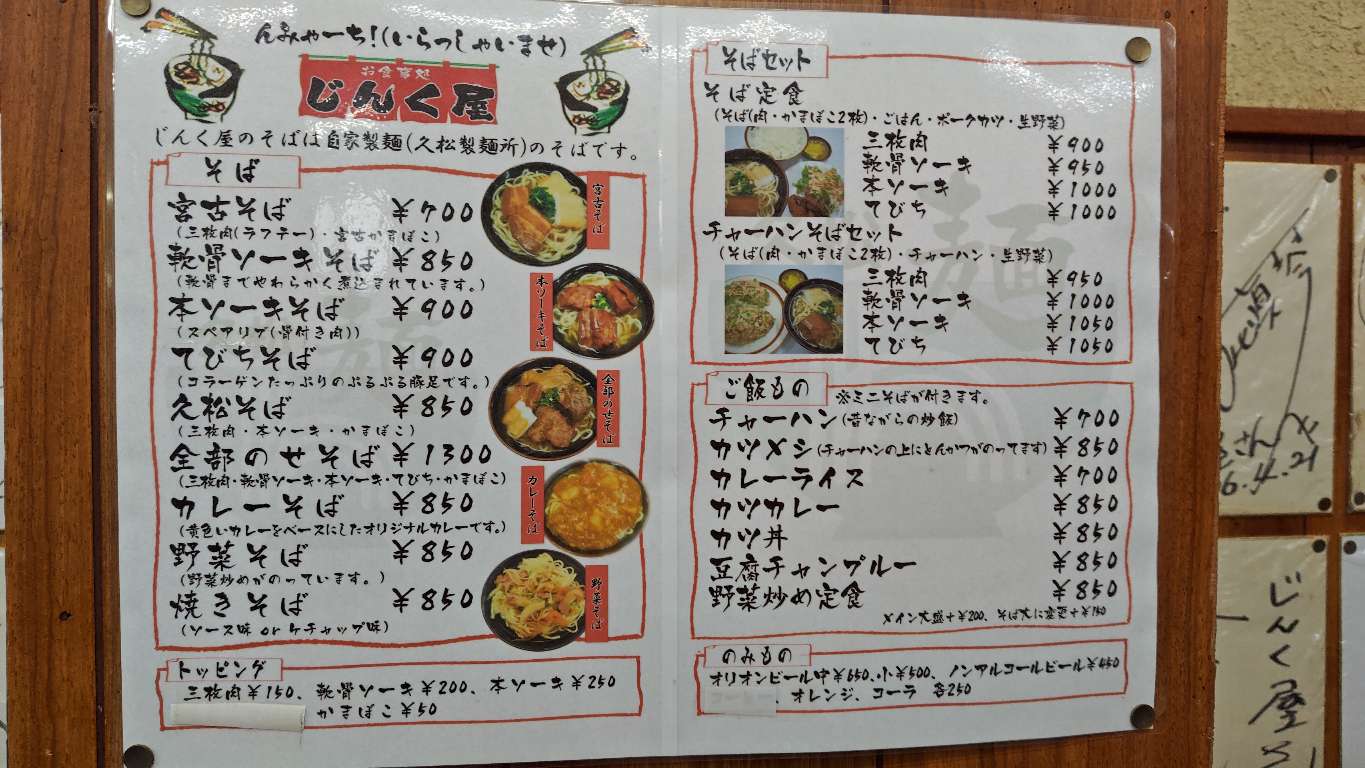 んみゃーち!(いらっしゃいませ)
お食事処
じんく屋
じんく屋のそばは自家製麺(久松製麺所)のそばです。
そば
宮古そば ¥700
(三枚肉(ラフテー)・宮古かまぼこ)
軟骨ソーキそば ¥850
(軟骨までやわらかく煮込まれています。)
本ソーキそば ¥900
(スペアリブ(骨付き肉))
てびちそば ¥900
(コラーゲンたっぷりのぷるぷる豚足です。)
久松そば ¥850
(三枚肉・本ソーキ・かまぼこ)
全部のせそば ¥1300
(三枚肉・軟骨ソーキ・本ソーキ・てびち・かまぼこ)
カレーそば ¥850
(黄色いカレーをベースにしたオリジナルカレーです。)
野菜そば ¥850
(野菜炒めがのっています。)
焼きそば ¥850
(ソース味 or ケチャップ味)
宮古そば
本ソーキそば
全部のせそば
カレーそば
野菜そば
トッピング
三枚肉¥150、軟骨ソーキ¥200、本ソーキ¥250
かまぼこ¥50
そばセット
そば定食
(そば(肉・かまぼこ2枚)・ごはん・ポークカツ・生野菜)
三枚肉 ¥900
軟骨ソーキ ¥950
本ソーキ ¥1000
てびち ¥1000
チャーハンそばセット
(そば(肉・かまぼこ2枚)・チャーハン・生野菜)
三枚肉 ¥950
軟骨ソーキ ¥1000
本ソーキ ¥1050
てびち ¥1050
ご飯もの ※ミニそばが付きます。
チャーハン(昔ながらの炒飯) ¥700
カツメシ(チャーハンの上にとんかつがのってます) ¥850
カレーライス ¥700
カツカレー ¥850
カツ丼 ¥850
豆腐チャンプルー ¥850
野菜炒め定食 ¥850
メイン大盛+¥200、そば大に変更+
のみもの
オリオンビール中¥650、小¥500、ノンアルコールビール¥450
、オレンジ、コーラ 各250
さん
6.4.21
じんく屋さ